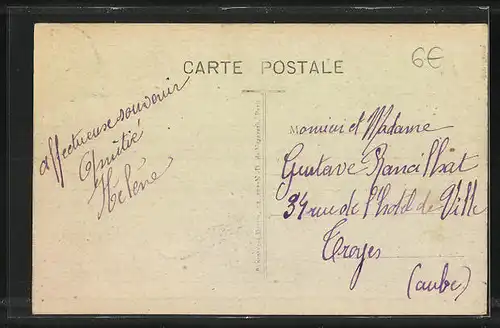 CARTE POSTALE
6€
affectueux souvenir
Amitié
Hélène
Monsieur et Madame
Gustave
34 rue de l'hotel de Ville
Troyes
(aube)